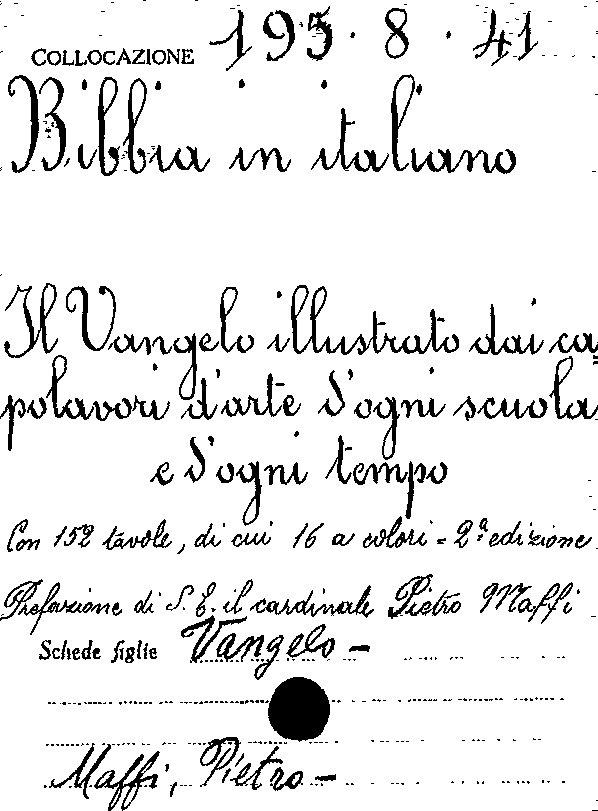 COLLOCAZIONE 195.8.41
Bibbia in italiano
Il Vangelo illustrato dai ca=
polavori d'arte d'ogni scuola
e d'ogni tempo
Con 152 tavole, di cui 16 a colori = 2ª edizione
Prefazione di S. E. il cardinale Pietro Maffi
Schede figlie Vangelo -
Maffi, Pietro -